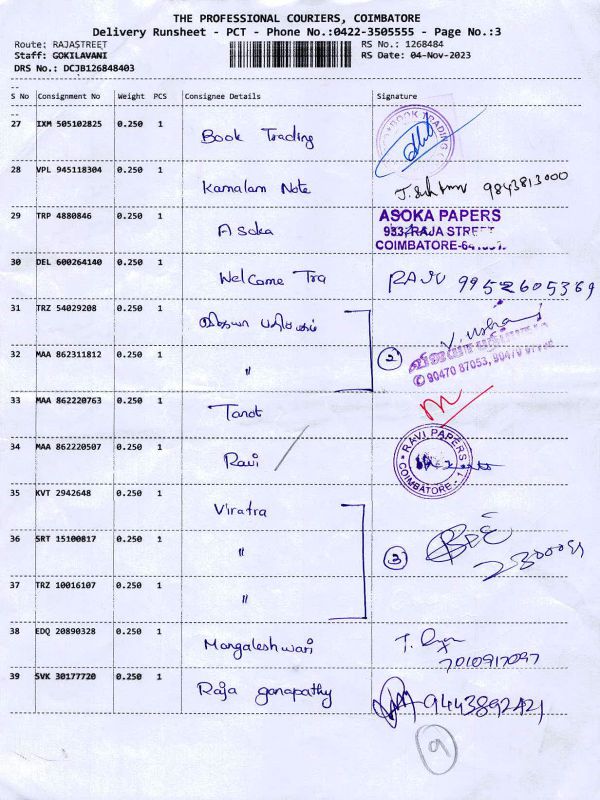 THE PROFESSIONAL COURIERS, COIMBATORE
Delivery Runsheet - PCT - Phone No.:0422-3505555 - Page No.:3
Route: RAJASTREET RS No.: 1268484
Staff: GOKILAVANI RS Date: 04-Nov-2023
DRS No.: DCJB126848403
S No Consignment No Weight PCS Consignee Details Signature
27 IXM 505102825 0.250 1 Book Trading
28 VPL 945118304 0.250 1 Kamalam Note 9843813000
29 TRP 4880846 0.250 1 Asoka
ASOKA PAPERS
933, RAJA STREET
COIMBATORE
30 DEL 600264140 0.250 1 Welcome Tra RAJU 9952605369
31 TRZ 54029208 0.250 1
32 MAA 862311812 0.250 1 " 2
© 90470 87053, 90470
33 MAA 862220763 0.250 1 Tarot
34 MAA 862220507 0.250 1 Ravi
RAVI PAPERS
COIMBATORE - 1
35 KVT 2942648 0.250 1 Viratra
36 SRT 15100817 0.250 1 " 3
37 TRZ 10016107 0.250 1 "
38 EDQ 20890328 0.250 1 Mangaleshwari
7010917097
39 SVK 30177720 0.250 1 Raja ganapathy 9443892421
9